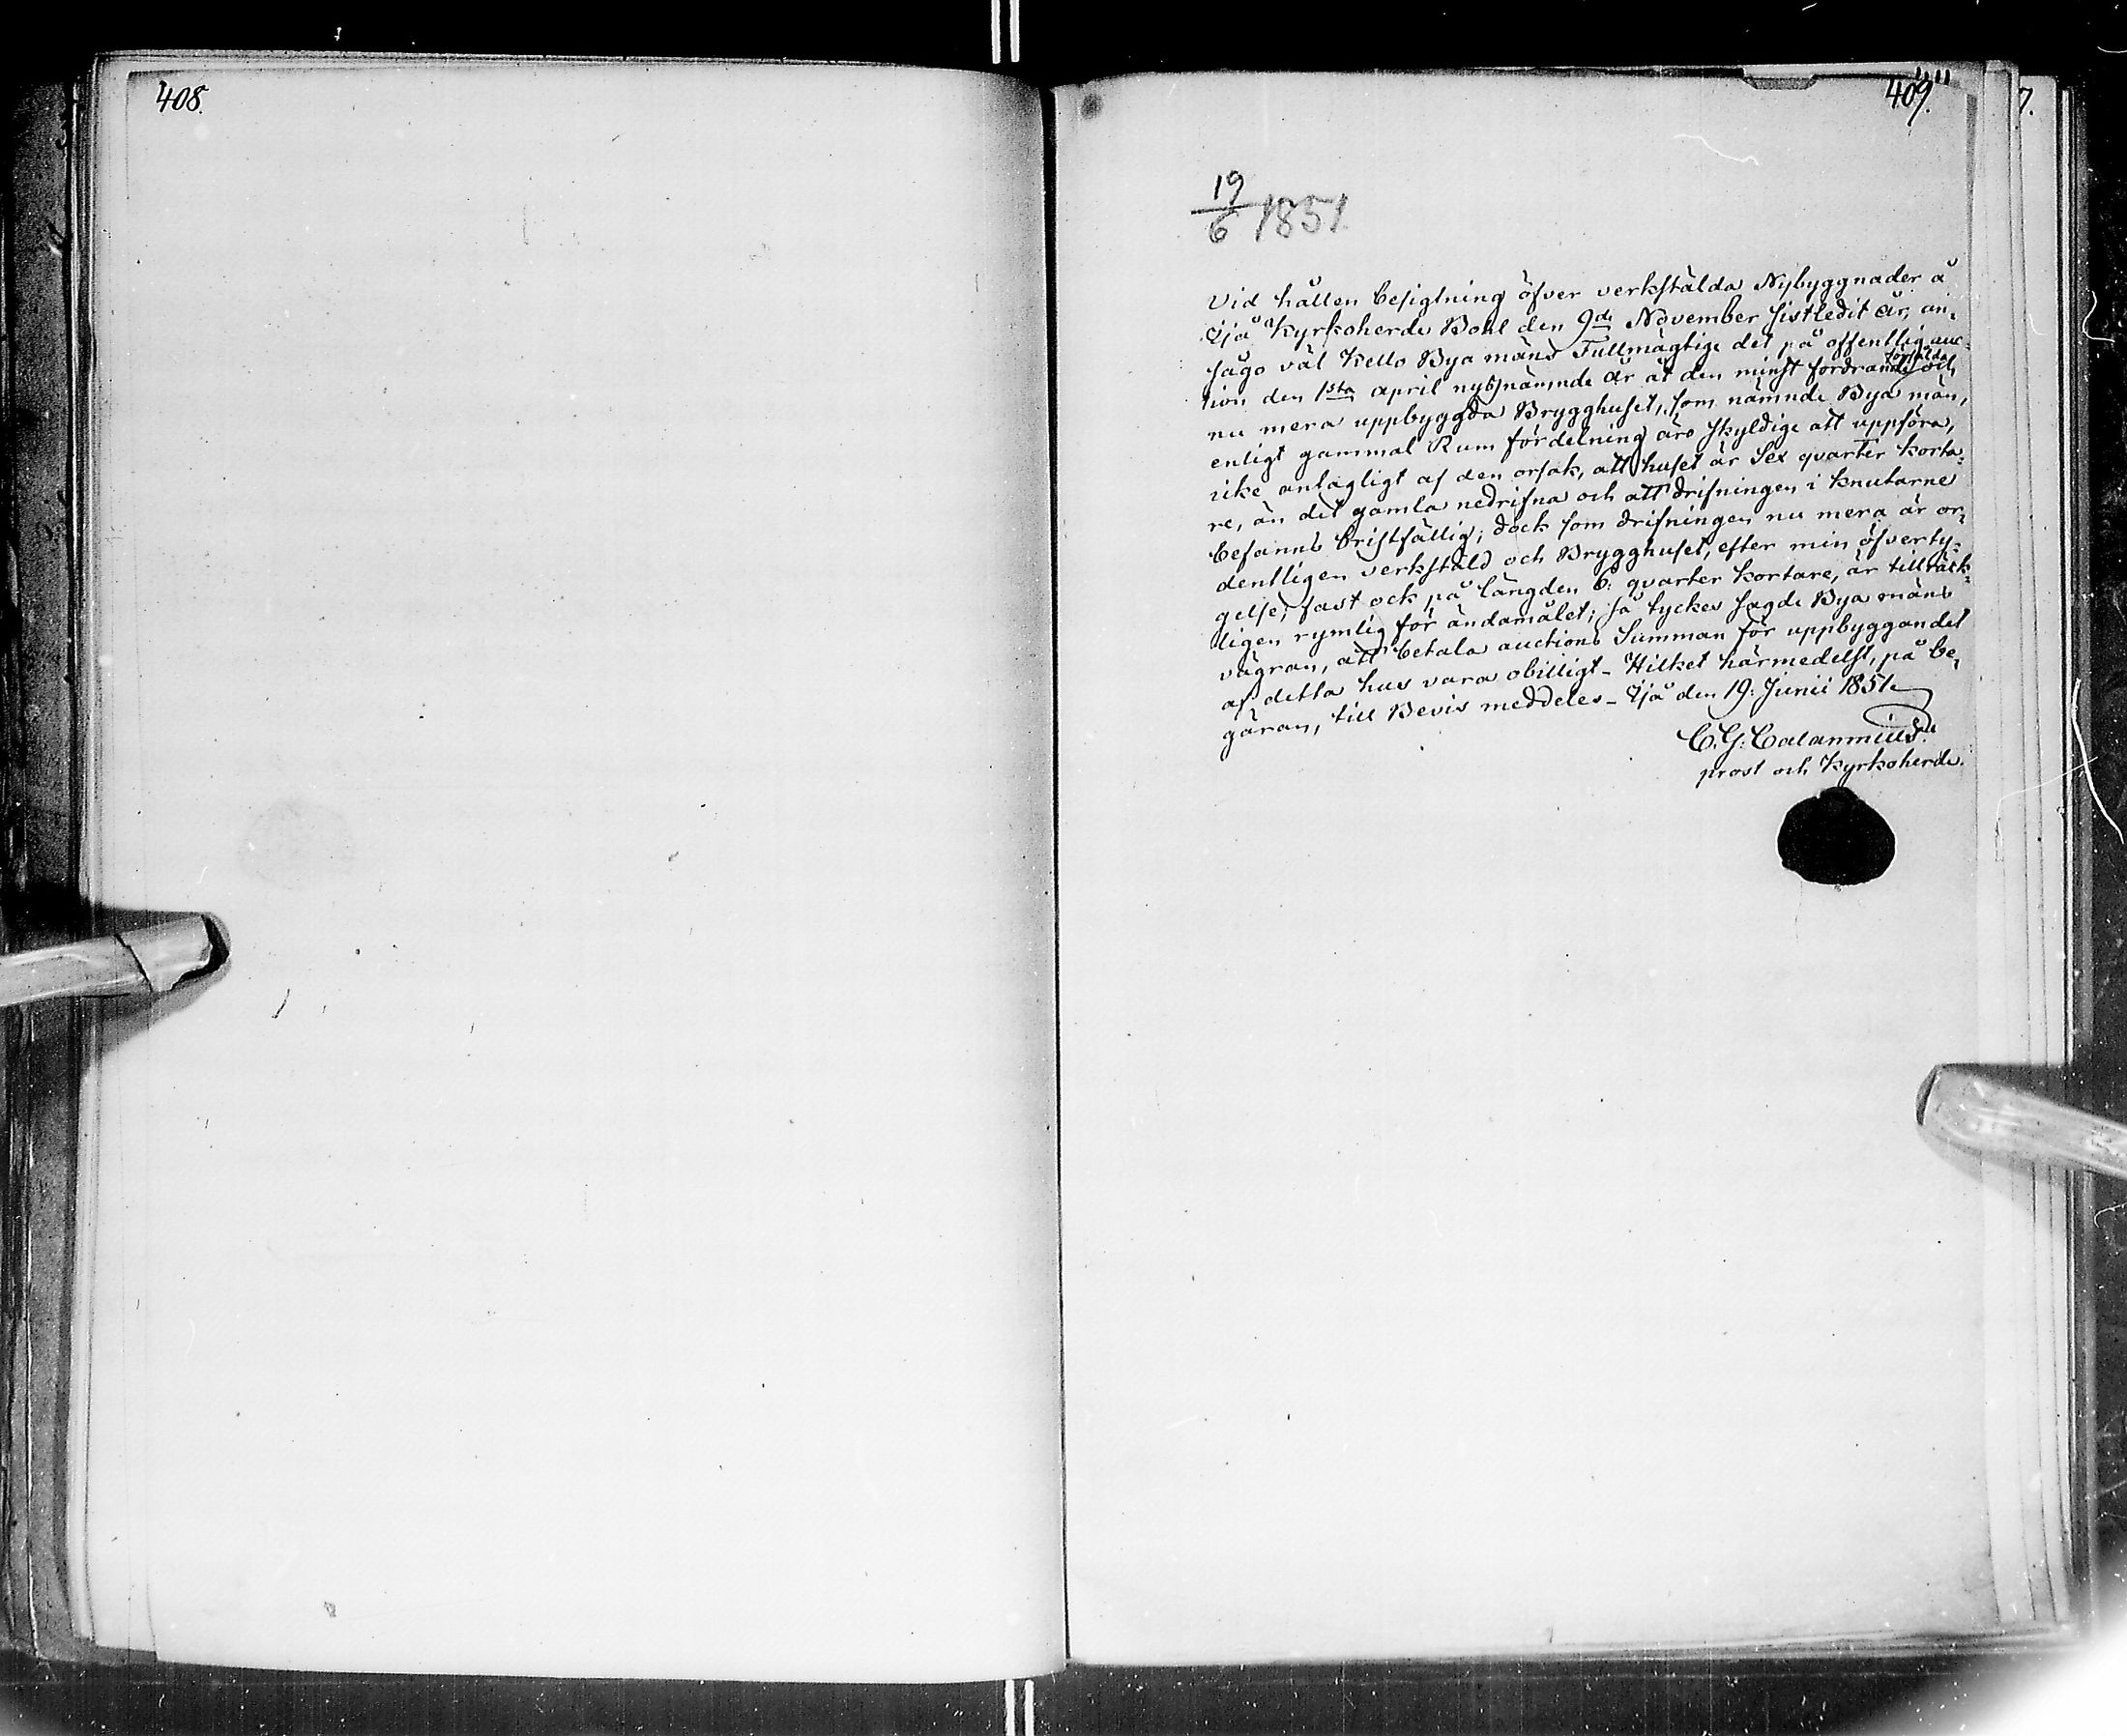 408.
409."
7.
19/6 1851.
Vid hållen besigtning öfver verkstälda Nybyggnader å
Ijå Kyrkoherde Bohl den 9de November sistledit år, an-
sågo väl Kello Bya mäns Fullmägtige det på offentlig auc-
tion den 1sta april nyssnämnde år åt den minst fordrande försålda och
nu mera uppbyggda Brygghuset, som nämnde Bya män,
enligt gammal Rum fördelning äro skyldige att uppföra,
icke antagligt af den orsak, att huset är Sex quarter korta-
re, än det gamla nedrifna och att drifningen i knutarne
befanns bristfällig; dock som drifningen nu mera är or-
dentligen verkstäld och Brygghuset, efter min öfverty-
gelse, fast ock på längden 6. quarter kortare, är tillräck-
ligen rymlig för ändamålet; så tyckes sagde Bya mäns
vägran, att betala auctions Summan för uppbyggandet
af detta hus vara obilligt - Hilket härmedelst, på be-
gäran, till Bevis meddeles - Ijå den 19. Junii 1851.
C. G. Calamnius.
prost och Kyrkoherde.